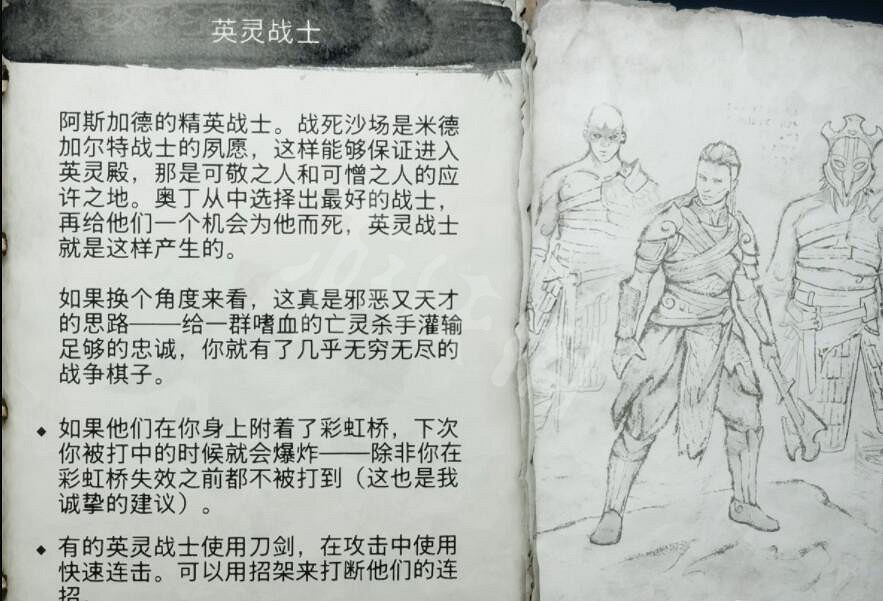 英灵战士
阿斯加德的精英战士。战死沙场是米德
加尔特战士的夙愿，这样能够保证进入
英灵殿，那是可敬之人和可憎之人的应
许之地。奥丁从中选择出最好的战士，
再给他们一个机会为他而死，英灵战士
就是这样产生的。
如果换个角度来看，这真是邪恶又天才
的思路——给一群嗜血的亡灵杀手灌输
足够的忠诚，你就有了几乎无穷无尽的
战争棋子。
◆ 如果他们在你身上附着了彩虹桥，下次
你被打中的时候就会爆炸——除非你在
彩虹桥失效之前都不被打到（这也是我
诚挚的建议）。
◆ 有的英灵战士使用刀剑，在攻击中使用
快速连击。可以用招架来打断他们的连
招。